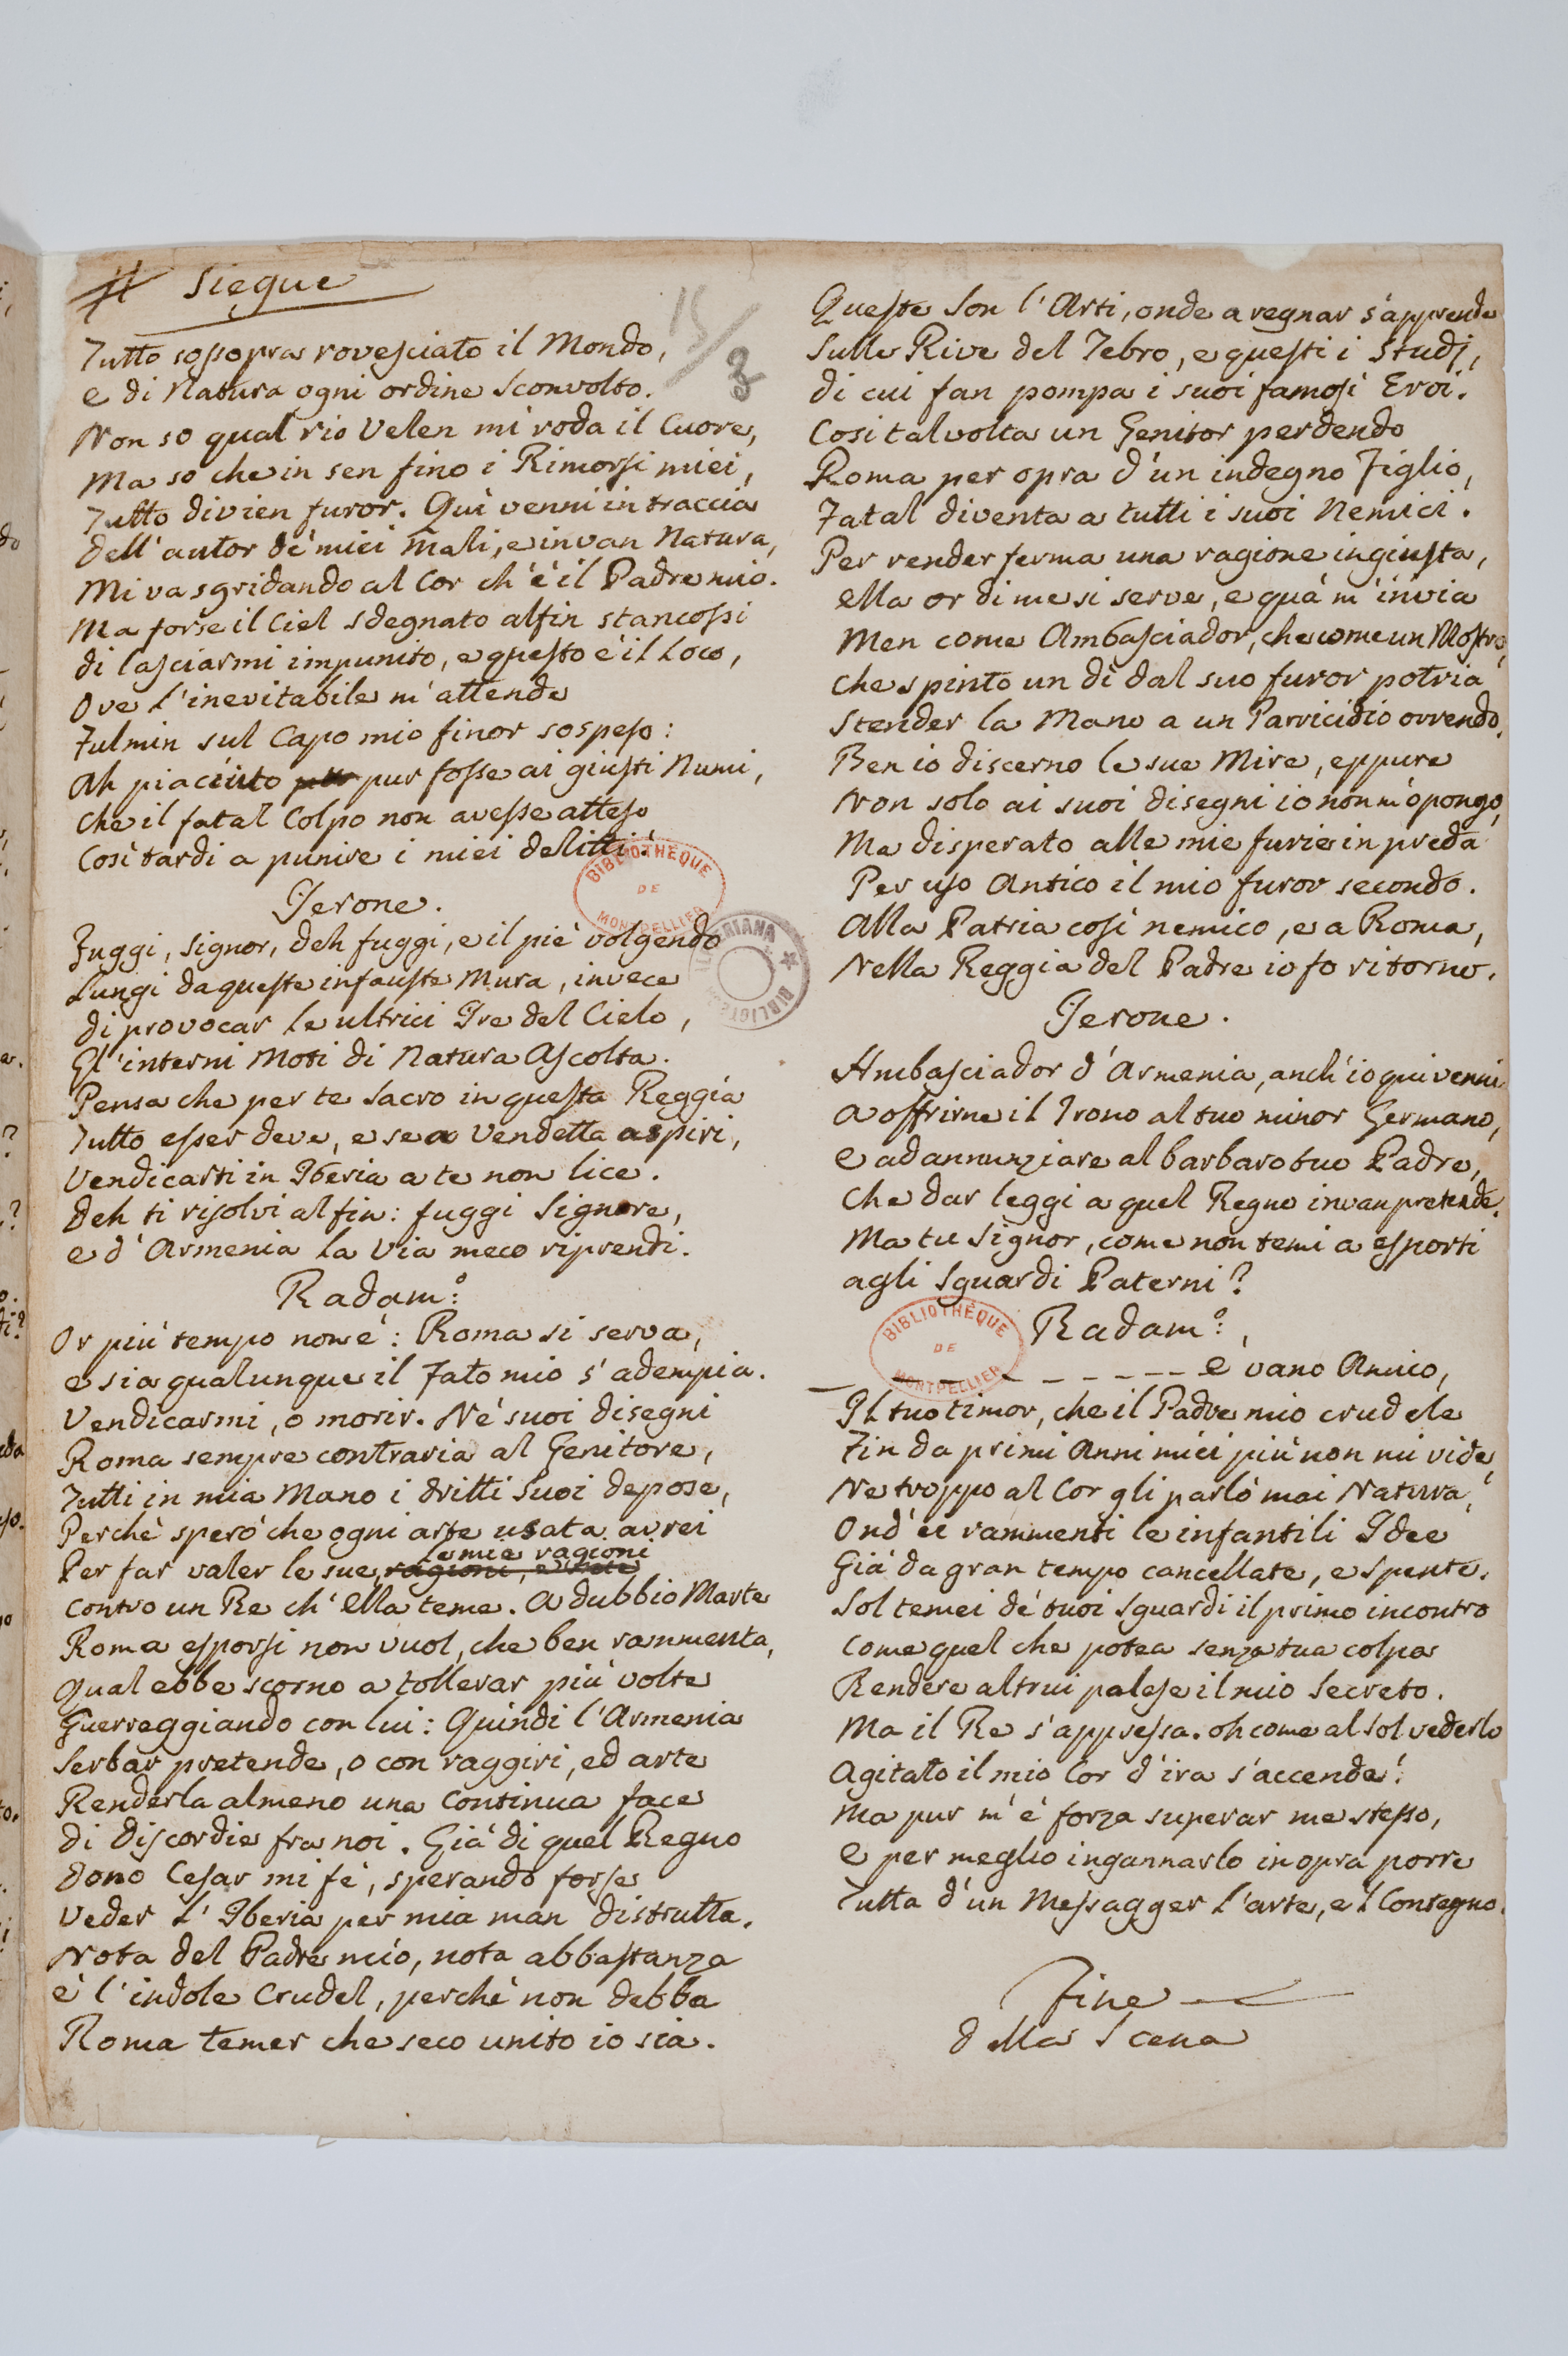 # Siegue
15/3
Tutto sossopra rovesciato il Mondo,
e di Natura ogni ordine sconvolto.
Non so qual rio Velen mi roda il Cuore,
Ma so che in sen fino i Rimorsi miei,
Tutto divien furor. Quì venni in traccia
dell'autor de' miei mali, e invan Natura,
Mi va sgridando al Cor ch'è il Padre mio.
Ma forse il Ciel sdegnato alfin stancossi
di lasciarmi impunito, e questo è il Loco,
Ove l'inevitabile m'attende
Fulmin sul Capo mio finor sospeso:
Ah piaciuto pur fosse ai giusti Numi,
che il fatal Colpo non avesse atteso
Così tardi a punire i miei delitti!
Jerone.
Fuggi, Signor, deh fuggi, e il piè volgendo
Lungi da queste infauste Mura, invece
di provocar le ultrici Ire del Cielo,
Gl'interni Moti di Natura Ascolta.
Pensa che per te Sacro in questa Reggia
Tutto esser deve, e se a Vendetta aspiri,
Vendicarti in Iberia a te non lice.
Deh ti risolvi alfin: fuggi Signore,
e d'Armenia la Via meco riprendi.
Radam:o
Or più tempo non è: Roma si serva,
e sia qualunque il Fato mio s'adempia.
Vendicarmi, o morir. Ne' suoi disegni
Roma sempre contraria al Genitore,
Tutti in mia Mano i dritti Suoi depose,
Perchè sperò che ogni arte usata avrei
le mie ragioni
Per far valer le sue, ragioni, e
contro un Re ch'Ella teme. A dubbio Marte
Roma esporsi non vuol, che ben rammenta,
Qual ebbe scorno a tollerar più volte
Guerreggiando con lui: Quindi l'Armenia
Serbar pretende, o con raggiri, ed arte
Renderla almeno una Continua face
di discordie fra noi. Già di quel Regno
dono Cesar mi fè, sperando forse
Veder l'Iberia per mia man distrutta.
Nota del Padre mio, nota abbastanza
è l'indole Crudel, perchè non debba
Roma temer che seco unito io sia.
Queste Son l'Arti, onde a regnar s'apprende
Sulle Rive del Tebro, e questi i Studj,
di cui fan pompa i suoi famosi Eroi!
Così talvolta un Genitor perdendo
Roma per opra d'un indegno Figlio,
Fatal diventa a tutti i suoi Nemici.
Per render ferma una ragione ingiusta,
ella or di me si serve, e quà m'invia
Men come Ambasciador, che come un Mostro,
che spinto un dì dal suo furor potria
Stender la Mano a un Parricidio orrendo.
Ben io discerno le sue Mire, eppure
Non solo ai suoi disegni io non m'opongo,
Ma disperato alle mie furie in preda
Per uso Antico il mio furor secondo.
Alla Patria così nemico, e a Roma,
Nella Reggia del Padre io fo ritorno.
Jerone.
Ambasciador d'Armenia, anch'io qui venni
a offrirne il Trono al tuo minor Germano,
e ad annunziare al barbaro tuo Padre,
Che dar leggi a quel Regno invan pretende.
Ma tu Signor, come non temi a esporti
agli Sguardi Paterni?
Radam:o,
_ _ _ _ _ _ _ _ _ _ _ è vano Amico,
Il tuo timor, che il Padre mio crudele
Fin da primi Anni miei più non mi vide,
Ne troppo al Cor gli parlò mai Natura,
Ond'ei rammenti le infantili Idee
Già da gran tempo cancellate, e spente.
Sol temei de' tuoi Sguardi il primo incontro
come quel che potea senza tua colpa
Rendere altrui palese il mio Secreto.
Ma il Re s'appressa. oh come al sol vederlo
Agitato il mio Cor d'ira s'accende!
Ma pur m'è forza superar me stesso,
e per meglio ingannarlo in opra porre
Tutta d'un Messagger l'arte, e 'l Contegno.
Fine
della Scena
BIBLIOTHÈQUE
DE
MONTPELLIER
BIBLIOTHÈQUE
DE
MONTPELLIER